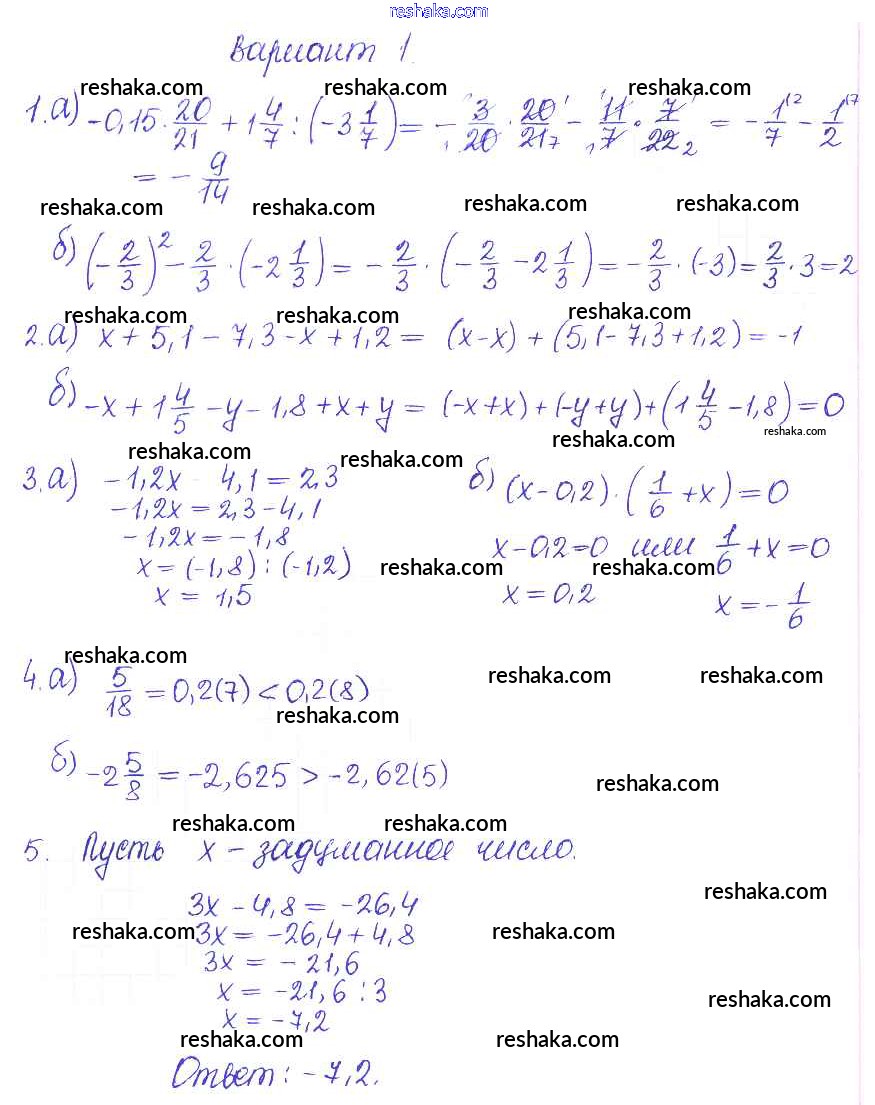 reshaka.com
Вариант 1.
reshaka.com reshaka.com reshaka.com
1. а) -0,15 · 20/21 + 1 4/7 : (-3 1/7) = - 3/20 · 20/21 - 11/7 · 7/22 = - 1/7 - 1/2
= - 9/14
reshaka.com reshaka.com reshaka.com reshaka.com
б) (-2/3)² - 2/3 · (-2 1/3) = - 2/3 · (-2/3 - 2 1/3) = - 2/3 · (-3) = 2/3 · 3 = 2
reshaka.com reshaka.com reshaka.com
2. а) x + 5,1 - 7,3 - x + 1,2 = (x - x) + (5,1 - 7,3 + 1,2) = -1
б) -x + 1 4/5 - y - 1,8 + x + y = (-x + x) + (-y + y) + (1 4/5 - 1,8) = 0
reshaka.com
reshaka.com reshaka.com reshaka.com
3. а) -1,2x 4,1 = 2,3
-1,2x = 2,3 - 4,1
-1,2x = -1,8
x = (-1,8) : (-1,2)
x = 1,5
б) (x - 0,2) · (1/6 + x) = 0
x - 0,2 = 0 или 1/6 + x = 0
reshaka.com reshaka.com
x = 0,2 x = - 1/6
reshaka.com
4. а) 5/18 = 0,2(7) < 0,2(8)
reshaka.com reshaka.com
reshaka.com
б) -2 5/8 = -2,625 > -2,62(5)
reshaka.com
reshaka.com reshaka.com
5. Пусть x - задуманное число.
reshaka.com
3x - 4,8 = -26,4
reshaka.com 3x = -26,4 + 4,8 reshaka.com
3x = -21,6
x = -21,6 : 3
reshaka.com
x = -7,2
reshaka.com reshaka.com
Ответ: -7,2.